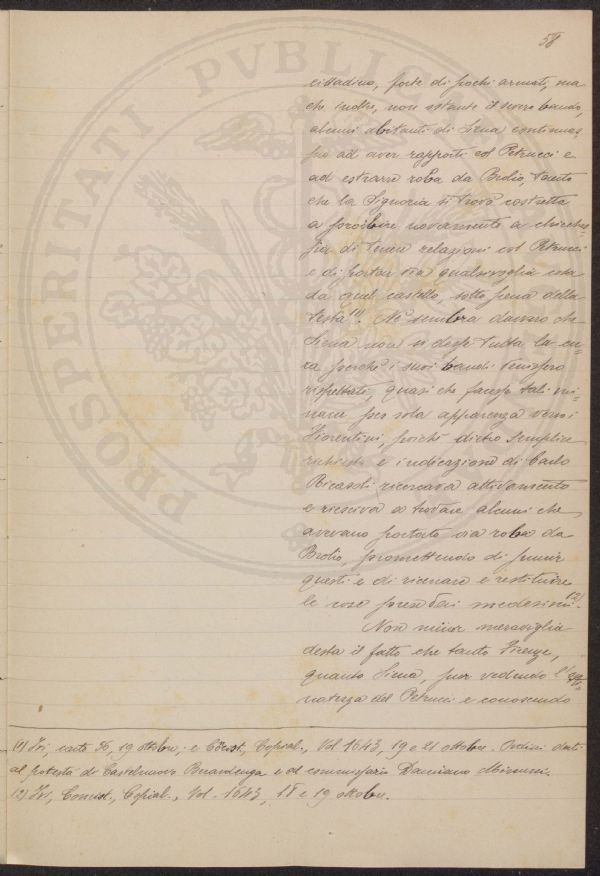 58
cittadino, forte di pochi armati, ma
che inoltre, non ostante il severo bando,
alcuni abitanti di Siena continuas-
sero ad aver rapporti col Petrucci e
ad estrarre roba da Brolio, tanto
che la Signoria si trovò costretta
a proibire novamente a chicches-
sia di tener relazioni col Petrucci
e di portar via qualsivoglia cosa
da quel castello, sotto pena della
testa (1). Nè sembra davvero che
Siena non si desse tutta la cu-
ra perchè i suoi bandi venissero
rispettati, quasi che facesse tali mi-
nacce per sola apparenza verso i
Fiorentini, poichè dietro semplice
richiesta e indicazione di Carlo
Ricasoli ricercava attivamente
e riesciva a trovare alcuni che
avevano portato via roba da
Brolio, promettendo di punir
questi e di ricercare e restituire
le cose prese dai medesimi (2).
Non minor meraviglia
desta il fatto che tanto Firenze,
quanto Siena, pur vedendo l'
natezza del Petrucci e conoscendo
(1) Ivi, carte 30, 19 ottobre; e Concist., Copial., Vol. 1643, 19 e 21 ottobre. Ordini dati
al potestà di Castelnuovo Berardenga e al commissario Damiano
(2) Ivi, Concist., Copial., Vol. 1643, 18 e 19 ottobre.
PROSPERITATI PVBLICAE